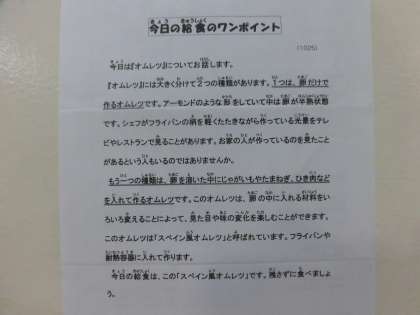 今日の給食のワンポイント
(1025)
今日は『オムレツ』についてお話します。
『オムレツ』には大きく分けて2つの種類があります。1つは、卵だけで
作るオムレツです。アーモンドのような形をしていて中は卵が半熟状態
です。シェフがフライパンの柄を軽くたたきながら作っている光景をテレ
ビやレストランで見ることがあります。お家の人が作っているのを見たこと
があるという人もいるのではありませんか。
もう一つの種類は、卵を溶いた中にじゃがいもやたまねぎ、ひき肉など
を入れて作るオムレツです。このオムレツは、卵の中に入れる材料をい
ろいろ変えることによって、見た目や味の変化を楽しむことができます。
このオムレツは「スペイン風オムレツ」と呼ばれています。フライパンや
耐熱容器に入れて作ります。
今日の給食は、この「スペイン風オムレツ」です。残さずに食べましょ
う。